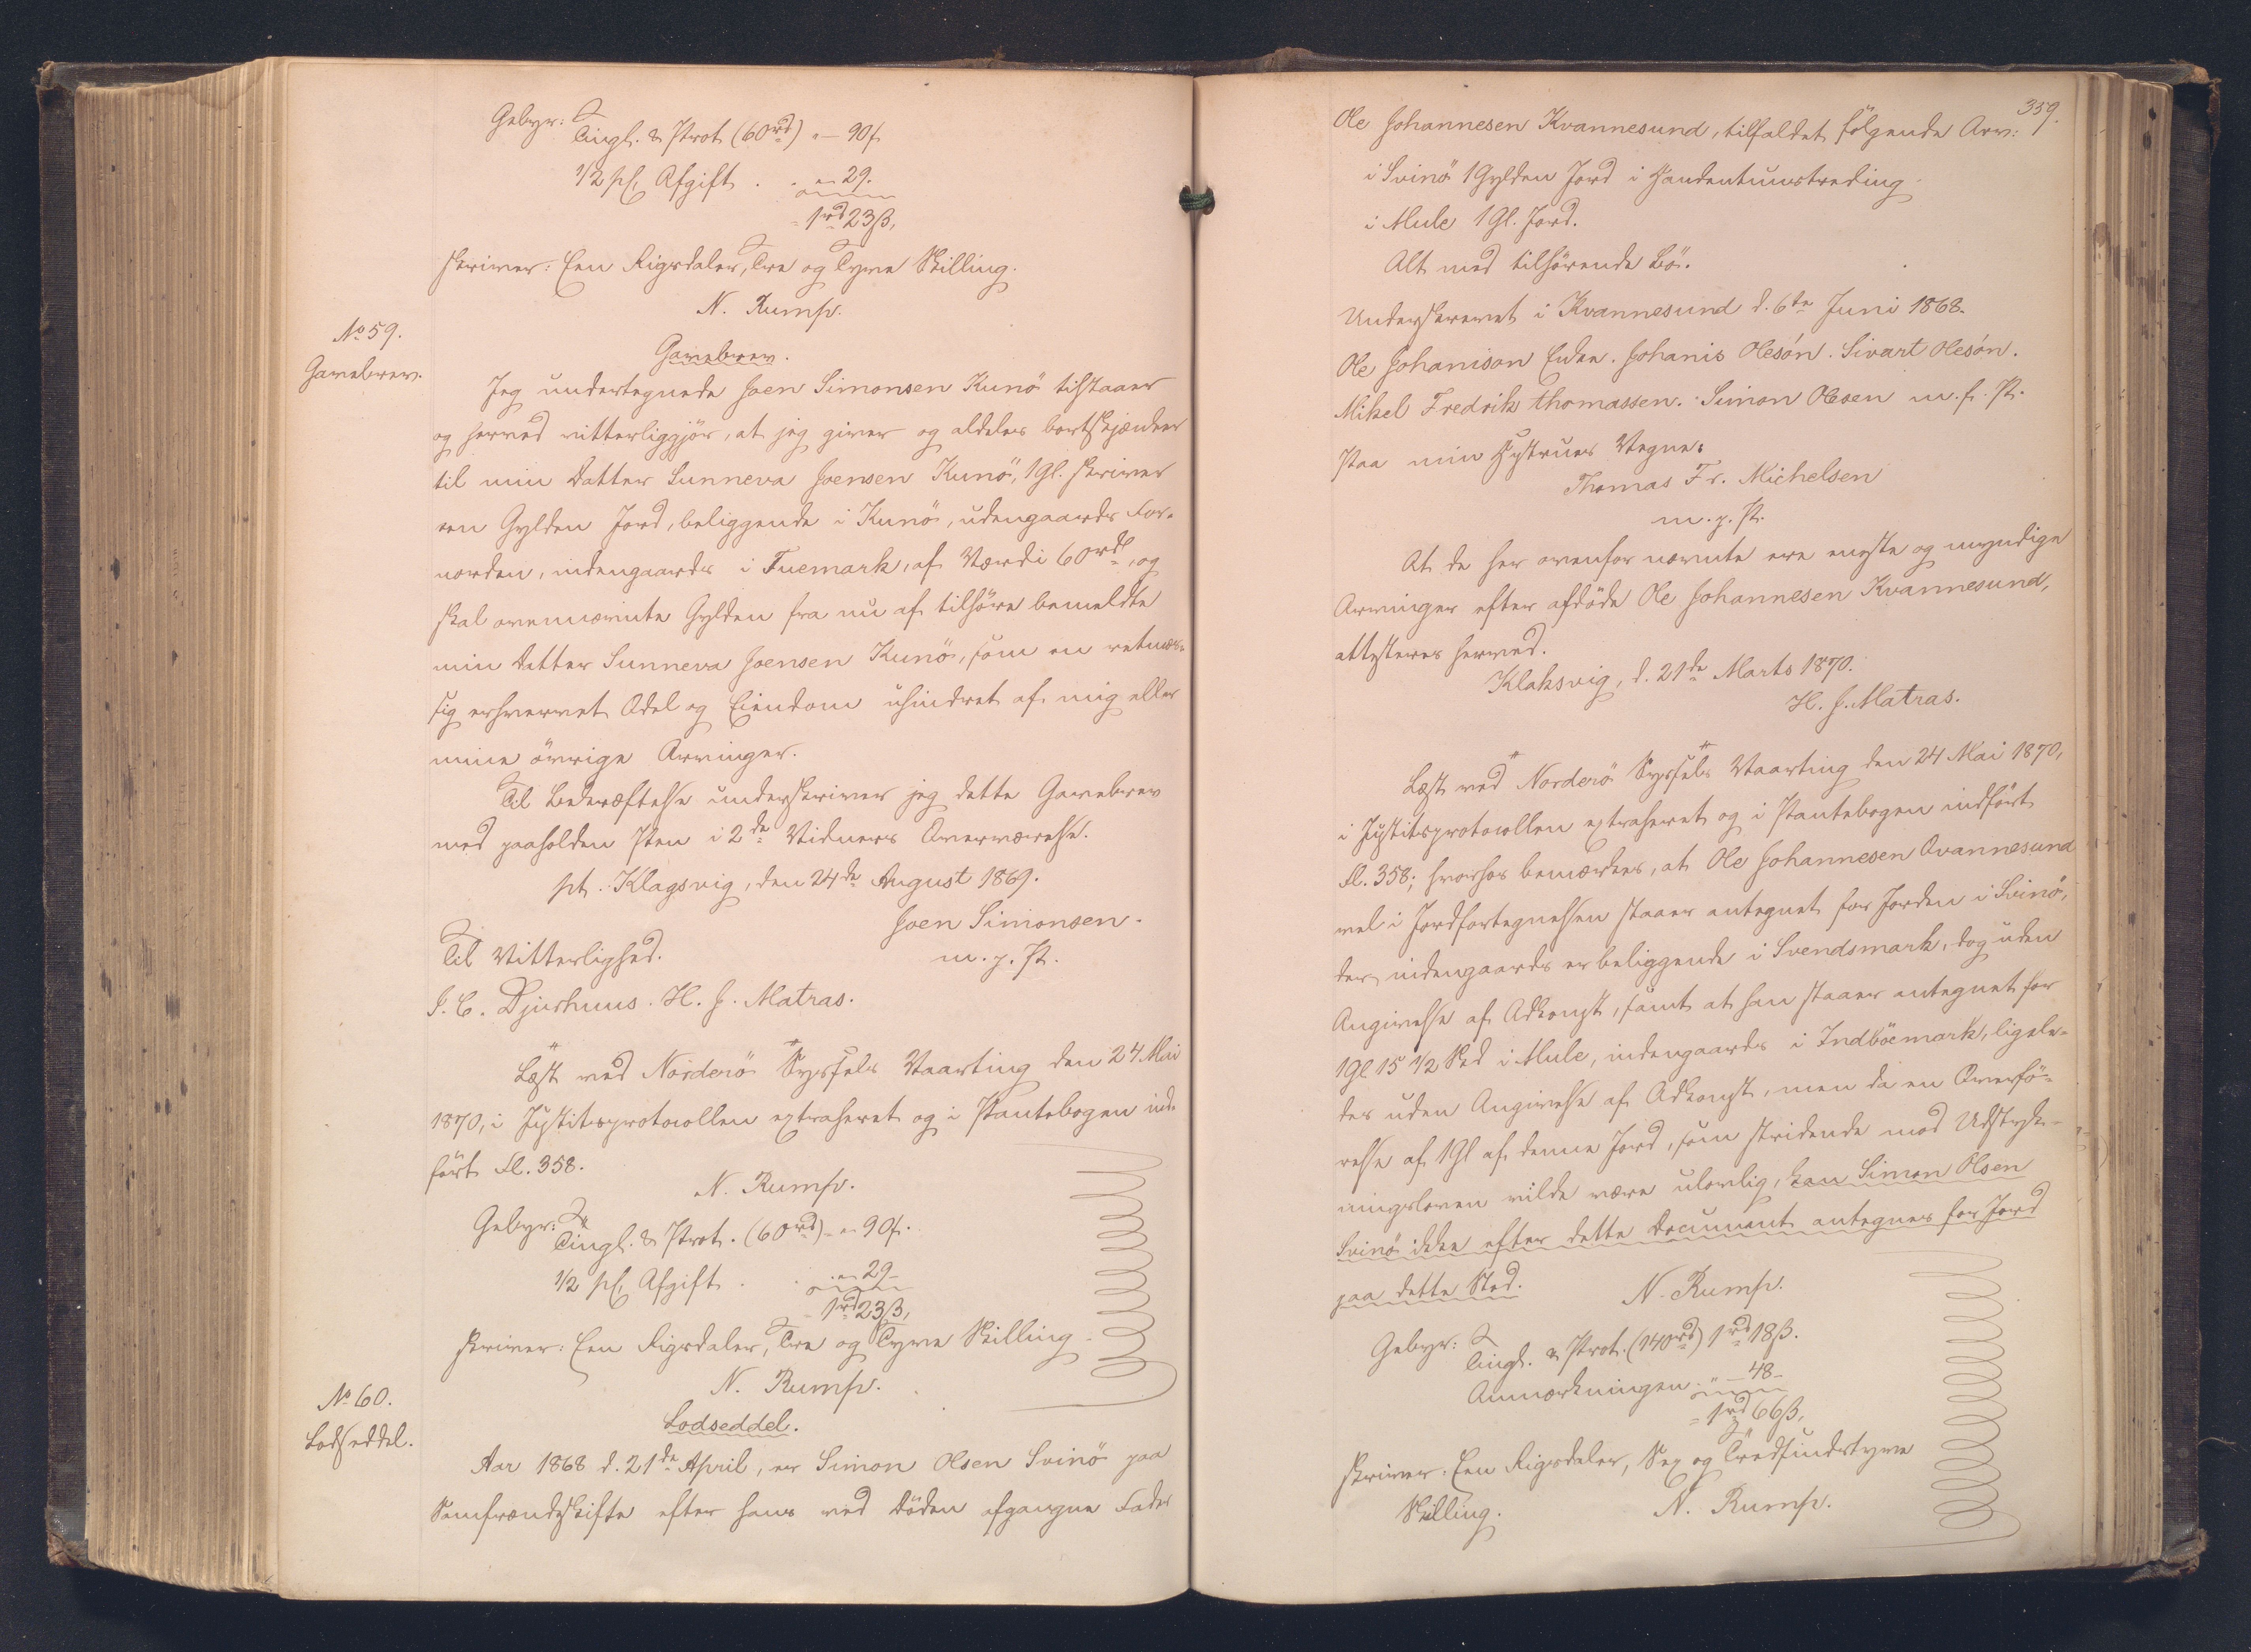 Gebyr: Tingl. & Prot (60rd) „ - 90ß
1/2 pC. Afgift . . „ - 29.
= 1rd 23ß,
skriver: Een Rigsdaler, Tre og Tyve Skilling.
N. Rump.
No 59.
Gavebrev.
Gavebrev.
Jeg undertegnede Joen Simonsen Kunö tilstaaer
og herved vitterliggjör, at jeg giver og aldeles bortskjænker
til min Datter Sunneva Joensen Kunö, 1 Gl. skriver
een Gylden Jord, beliggende i Kunö, udengaards For-
norden, indengaards i Tuemark, af Værdi 60rdl, og
skal ovennævnte Gylden fra nu af tilhöre bemeldte
min Datter Sunneva Joensen Kunö, som en retmæs-
sig erhvervet Odel og Eiendom uhindret af mig eller
mine övrige Arvinger.
Til Bekræftelse underskriver jeg dette Gavebrev
med paaholden Pen i 2de Vidners Overværelse.
pt. Klagsvig, den 24de August 1869.
Joen Simonsen.
m. p. P.
Til Vitterlighed.
J. C. Djurhuus. H. J. Matras.
Læst ved Norderö Syssels Vaarting den 24 Mai
1870, i Justitsprotocollen extraheret og i Pantebogen ind-
fört Fl. 358.
N. Rump.
Gebyr: Tingl. & Prot. (60rd) - „ 90ß.
1/2 pC. Afgift . . „ - 29 -
1rd 23ß,
skriver: Een Rigsdaler, Tre og Tyve Skilling.
N. Rump.
No 60.
Lodseddel.
Lodseddel.
Aar 1868 d. 21de April, er Simon Olsen Svinö paa
Samfrændeskifte efter hans ved Döden afgangne Fader
359.
Ole Johannesen Kvannesund, tilfaldet fölgende Arv:
i Svinö 1 Gylden Jord i
i Mule 1 Gl. Jord.
Alt med tilhörende Bö.
Underskrevet i Kvannesund d. 6te Juni 1868.
Ole Johanison Eide. Johanis Olesón. Sivart Olesón.
Mikel Fredrik thomassen. Simon Olsen m. f. P.
Paa min Hustrues Vegne:
Thomas Fr. Michelsen
m. p. P.
At de her ovenfor nævnte ere eneste og myndige
Arvinger efter afdöde Ole Johannesen Kvannesund,
attesteres herved.
Klaksvig, d. 21de Marts 1870.
H. J. Matras.
Læst ved Norderö Syssels Vaarting den 24 Mai 1870,
i Justitsprotocollen extraheret og i Pantebogen indfört
Fl. 358; hvorhos bemærkes, at Ole Johannesen Qvannesund
vel i Jordfortegnelsen staaer antegnet for Jorden i Svinö,
der indengaards er beliggende i Svendsmark, dog uden
Angivelse af Adkomst, samt at han staaer antegnet for
1 Gl 15 1/2 Skd i Mule, indengaards i Indböemark, ligele-
des uden Angivelse af Adkomst, men da en Overfö-
relse af 1 Gl af denne Jord, som stridende mod Udstyk-
ningsloven vilde være ulovlig, kan Simon Olsen
Svinö ikke efter dette Document antegnes for Jord
paa dette Sted.
N. Rump.
Gebyr: Tingl. & Prot. (140rd) 1rd 18ß.
Anmærkningen . „ - 48 -
= 1rd 66ß,
skriver: Een Rigsdaler, Sex og Tredsindstyve
Skilling.
N. Rump.